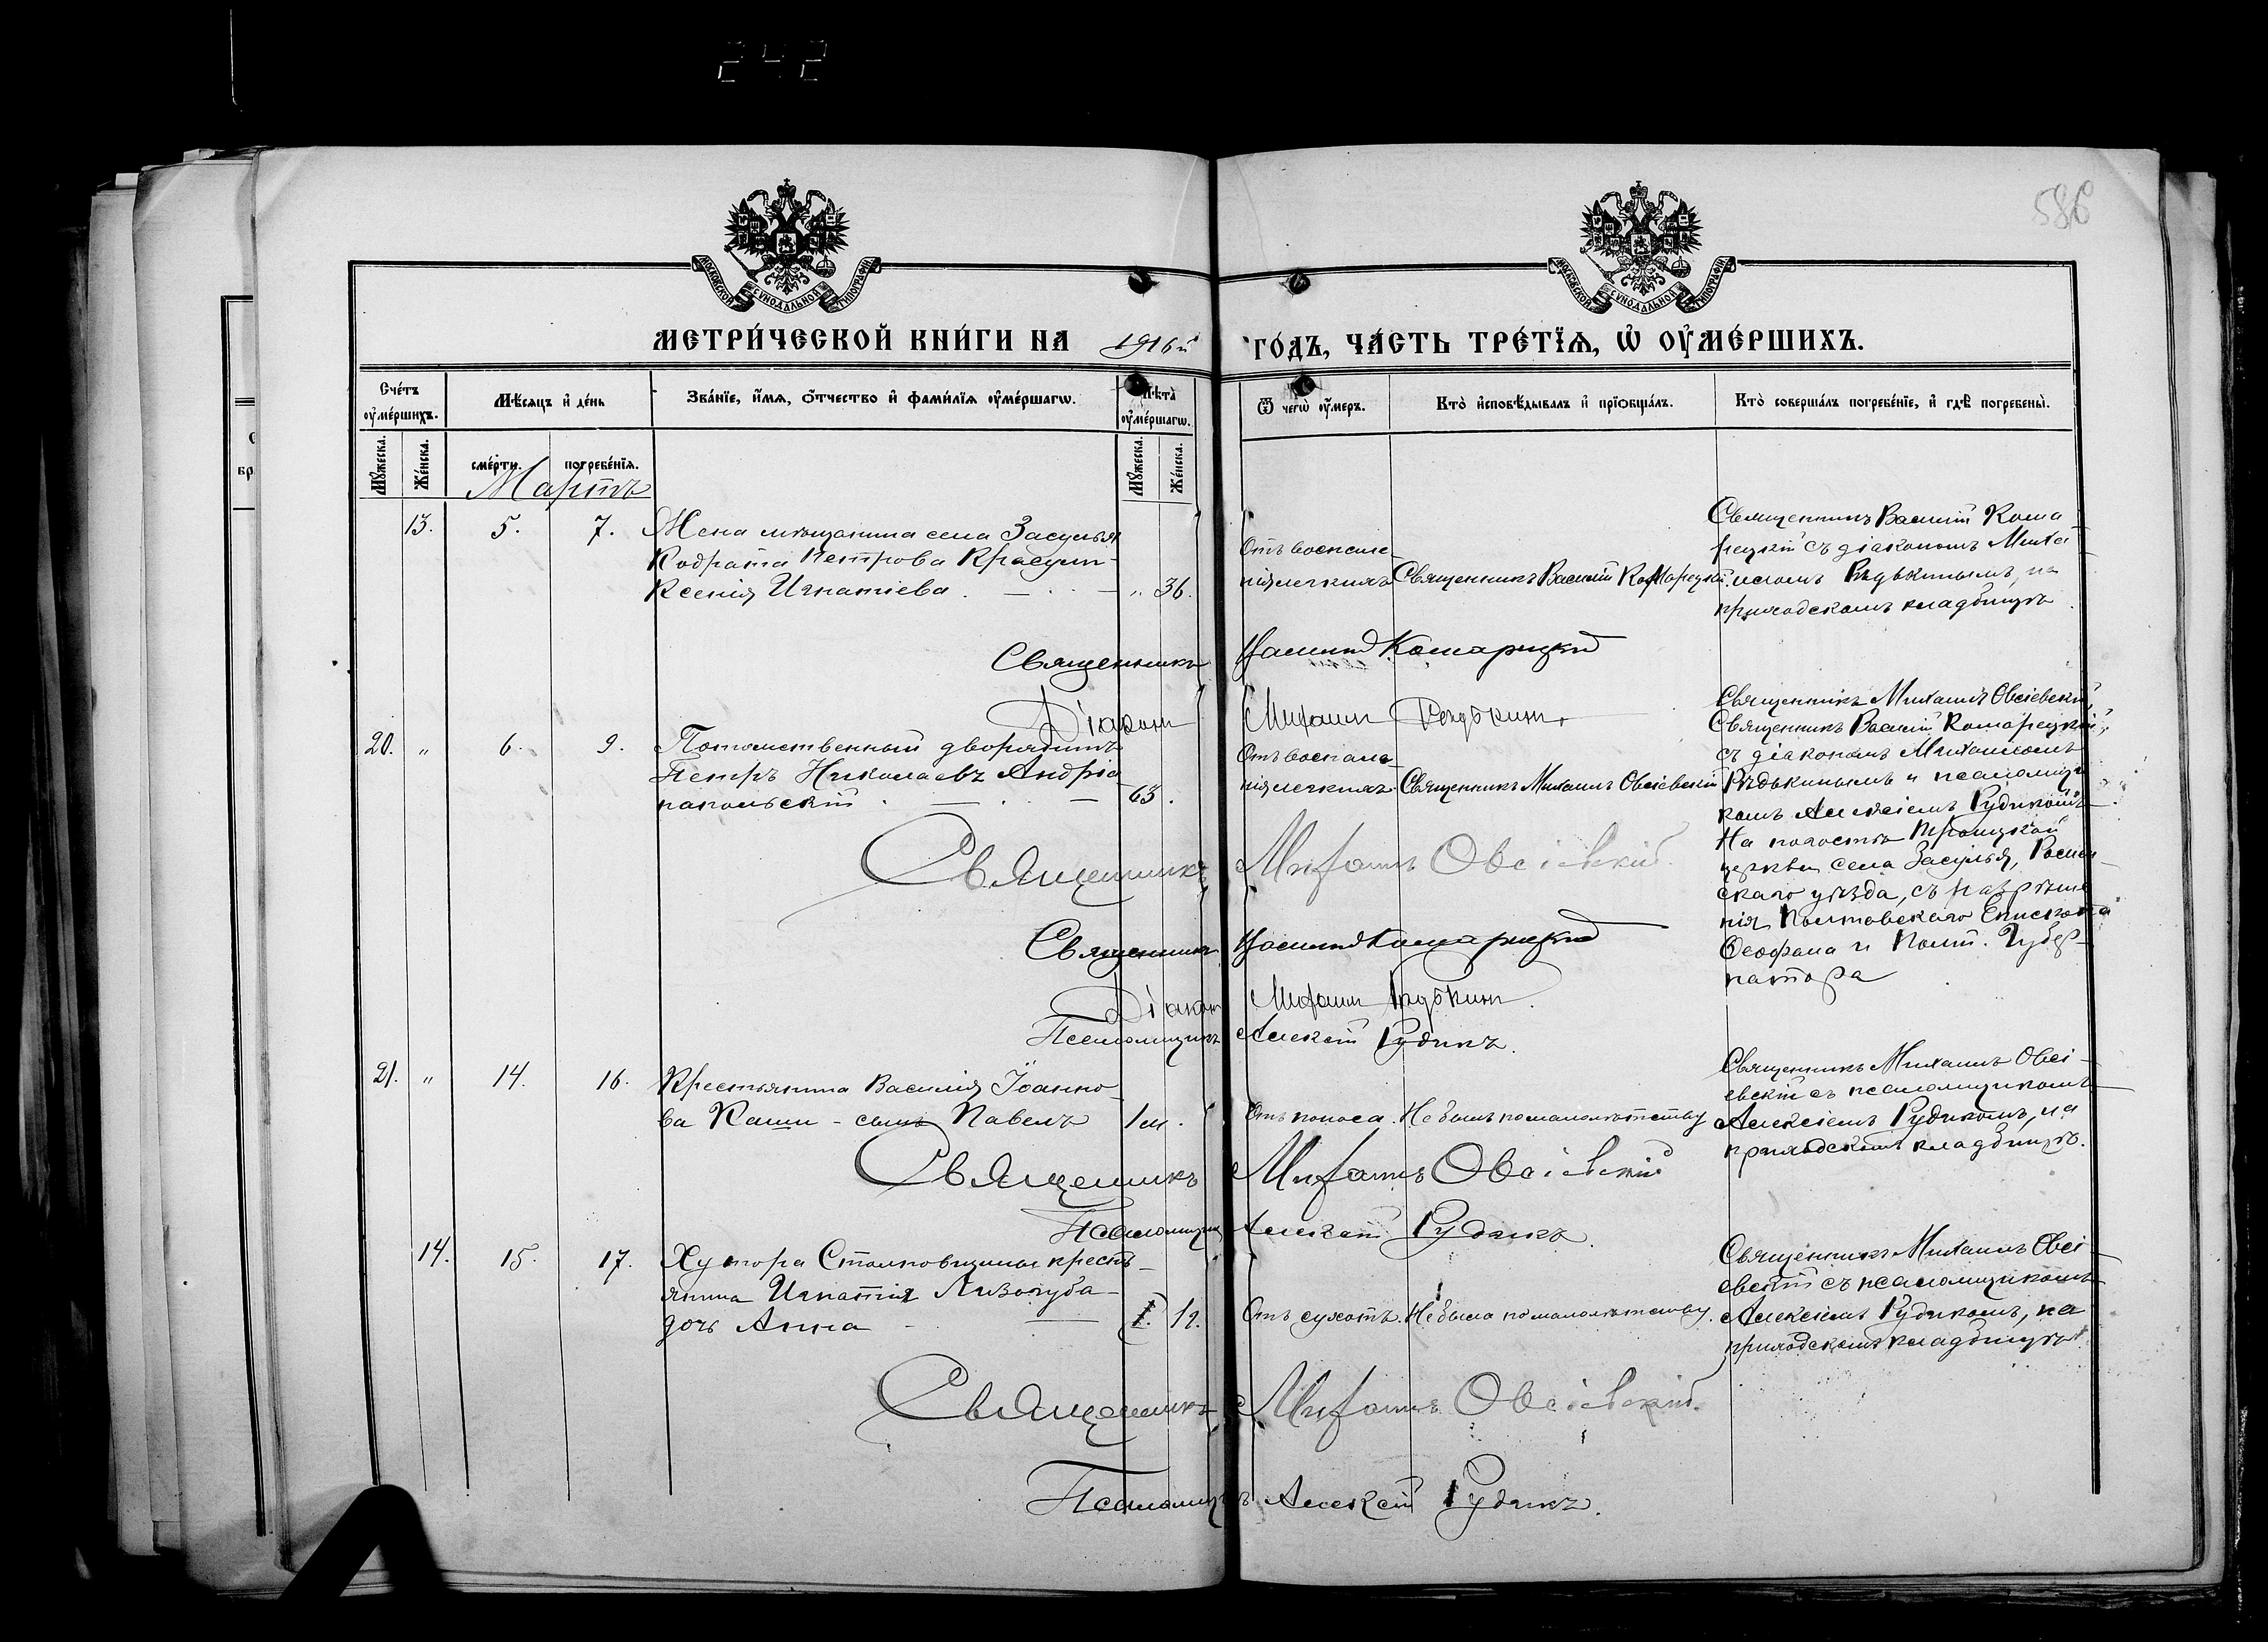 242
586
МОСКОВСКОЙ СѴНОДАЛЬНОЙ ТИПОГРАФІИ
МОСКОВСКОЙ СѴНОДАЛЬНОЙ ТИПОГРАФІИ
МЕТРИ́ЧЕСКОЙ КНИ́ГИ НА 1916й ГО́ДЪ, ЧА́СТЬ ТРЕ́ТЇѦ, Ѡ҆ ОУ҆МЕ́РШИХЪ.
Сче́тъ оу҆ме́ршихъ.
Мѣ́сяцъ и҆ де́нь
Зва́нїе, и҆́мѧ, ѻ҆́тчество и҆ фами́лїѧ оу҆ме́ршагѡ.
Лѣта̀ оу҆ме́ршагѡ.
Ѿ чегѡ̀ оу҆́меръ.
Кто̀ и҆сповѣ́дывалъ и҆ прїѡбща́лъ.
Кто̀ соверша́лъ погребе́нїе, и҆ гдѣ̀ погребены̀.
Мꙋ́жеска. Же́нска. сме́рти. погребе́нїѧ. Мꙋ́жеска. Же́нска.
Мартъ
13. 5. 7. Жена мѣщанина села Засулья
Кодрата Петрова Красум-
Ксенія Игнатіева. — " 36.
Отъ воспале-
нія легкихъ
Священникъ Василій Комарецкій
Священникъ Василій Кома-
рецкій съ діакономъ Миха-
иломъ Рѣдькинымъ, на
приходскомъ кладбищѣ.
Священникъ Василій Комарецкій
Діаконъ Михаилъ Рѣдькинъ
20. " 6. 9. Потомственный дворянинъ
Петръ Николаевъ Андріа-
напольскій. — 63.
Отъ воспале-
нія легкихъ
Священникъ Михаилъ Овсіевскій
Священникъ Михаилъ Овсіевскій,
Священникъ Василій Комарецкій,
съ діакономъ Михаиломъ
Рѣдькинымъ и псаломщи-
комъ Алексіемъ Рудикомъ.
На погостѣ Троицкой
церкви села Засулья, Ромен-
скаго уѣзда, съ разрѣше-
нія Полтавскаго Епископа
Ѳеофана и Полт. Губер-
натора
Священникъ Михаилъ Овсіевскій.
Священникъ Василій Комарецкій
Діаконъ Михаилъ Рѣдькинъ.
Псаломщикъ Алексій Рудикъ.
21. " 14. 16. Крестьянина Василія Іоанно-
ва Каши - сынъ Павелъ 1м.
Отъ поноса. Не былъ по малолѣтству
Священникъ Михаилъ Овсі-
евскій съ псаломщикомъ
Алексіемъ Рудикомъ, на
приходскомъ кладбищѣ.
Священникъ Михаилъ Овсіевскій
Псаломщикъ Алексій Рудикъ.
14. 15. 17. Хутора Столповщины кресть-
янина Игнатія Лизогуба
дочь Анна — 1г.
Отъ сухотъ. Не была по малолѣтству.
Священникъ Михаилъ Овсі-
евскій съ псаломщикомъ
Алексіемъ Рудикомъ, на
приходскомъ кладбищѣ.
Священникъ Михаилъ Овсіевскій.
Псаломщикъ Алексій Рудикъ.